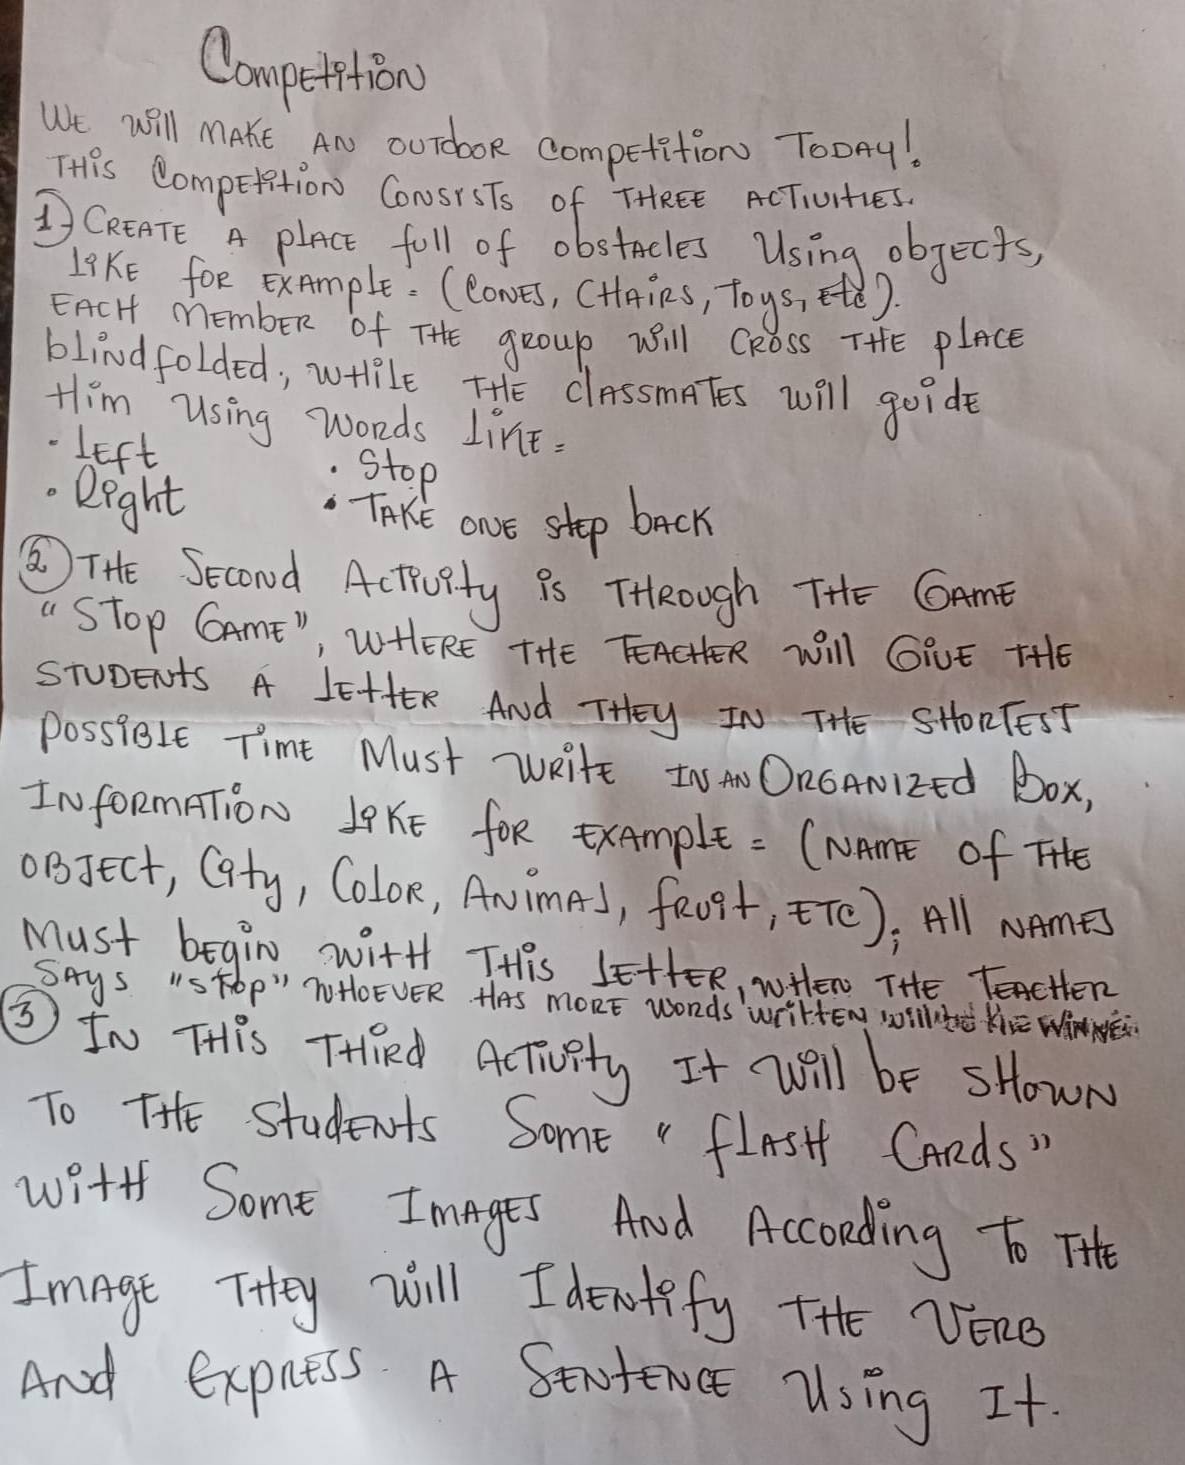 Competition
WE will MAKE AN OUTdOOR Competition TODAY!
THis Competition Consists of THREE ACTIVITIES.
1) CREATE A plACE full of obstaclEs Using objects,
likE foR ExAmplE = (CONEs, CHAiRs, Toys, Etc).
EACH MEMbER of THE group will CRoss THE plACE
blindfoldEd, WHilE THE clAssmATEs will guidE
Him Using Words likE =
• lEft
• Stop
• Right
• TAKE ONE stEp bACK
2) THE SEcond Activity is THRough THE GAME
"Stop GAME", WHERE THE TEACHER will GivE THE
STUDENts A lEttER And THEy IN THE SHORTEST
possiblE TimE Must WRitE IN AN ORGANIZEd Box,
INfoRMATION likE foR ExAmplE = (NAME of THE
OBJEct, City, ColoR, ANiMAl, fRuit, ETC); All NAMEs
Must bEgiN WitH THis lEttER, WHEN THE TEACHER
SAys "stop" WHOEVER HAS MORE woRds wRittEN will be the WiNNER
3) IN THis THiRd Activity It will bE SHowN
To THE studENts SomE "flASH CARds"
WitH SomE ImAgEs And AccoRding To THE
ImAgE THEy will IdENtify THE VERB
And ExpREss A SENtENCE Using It.